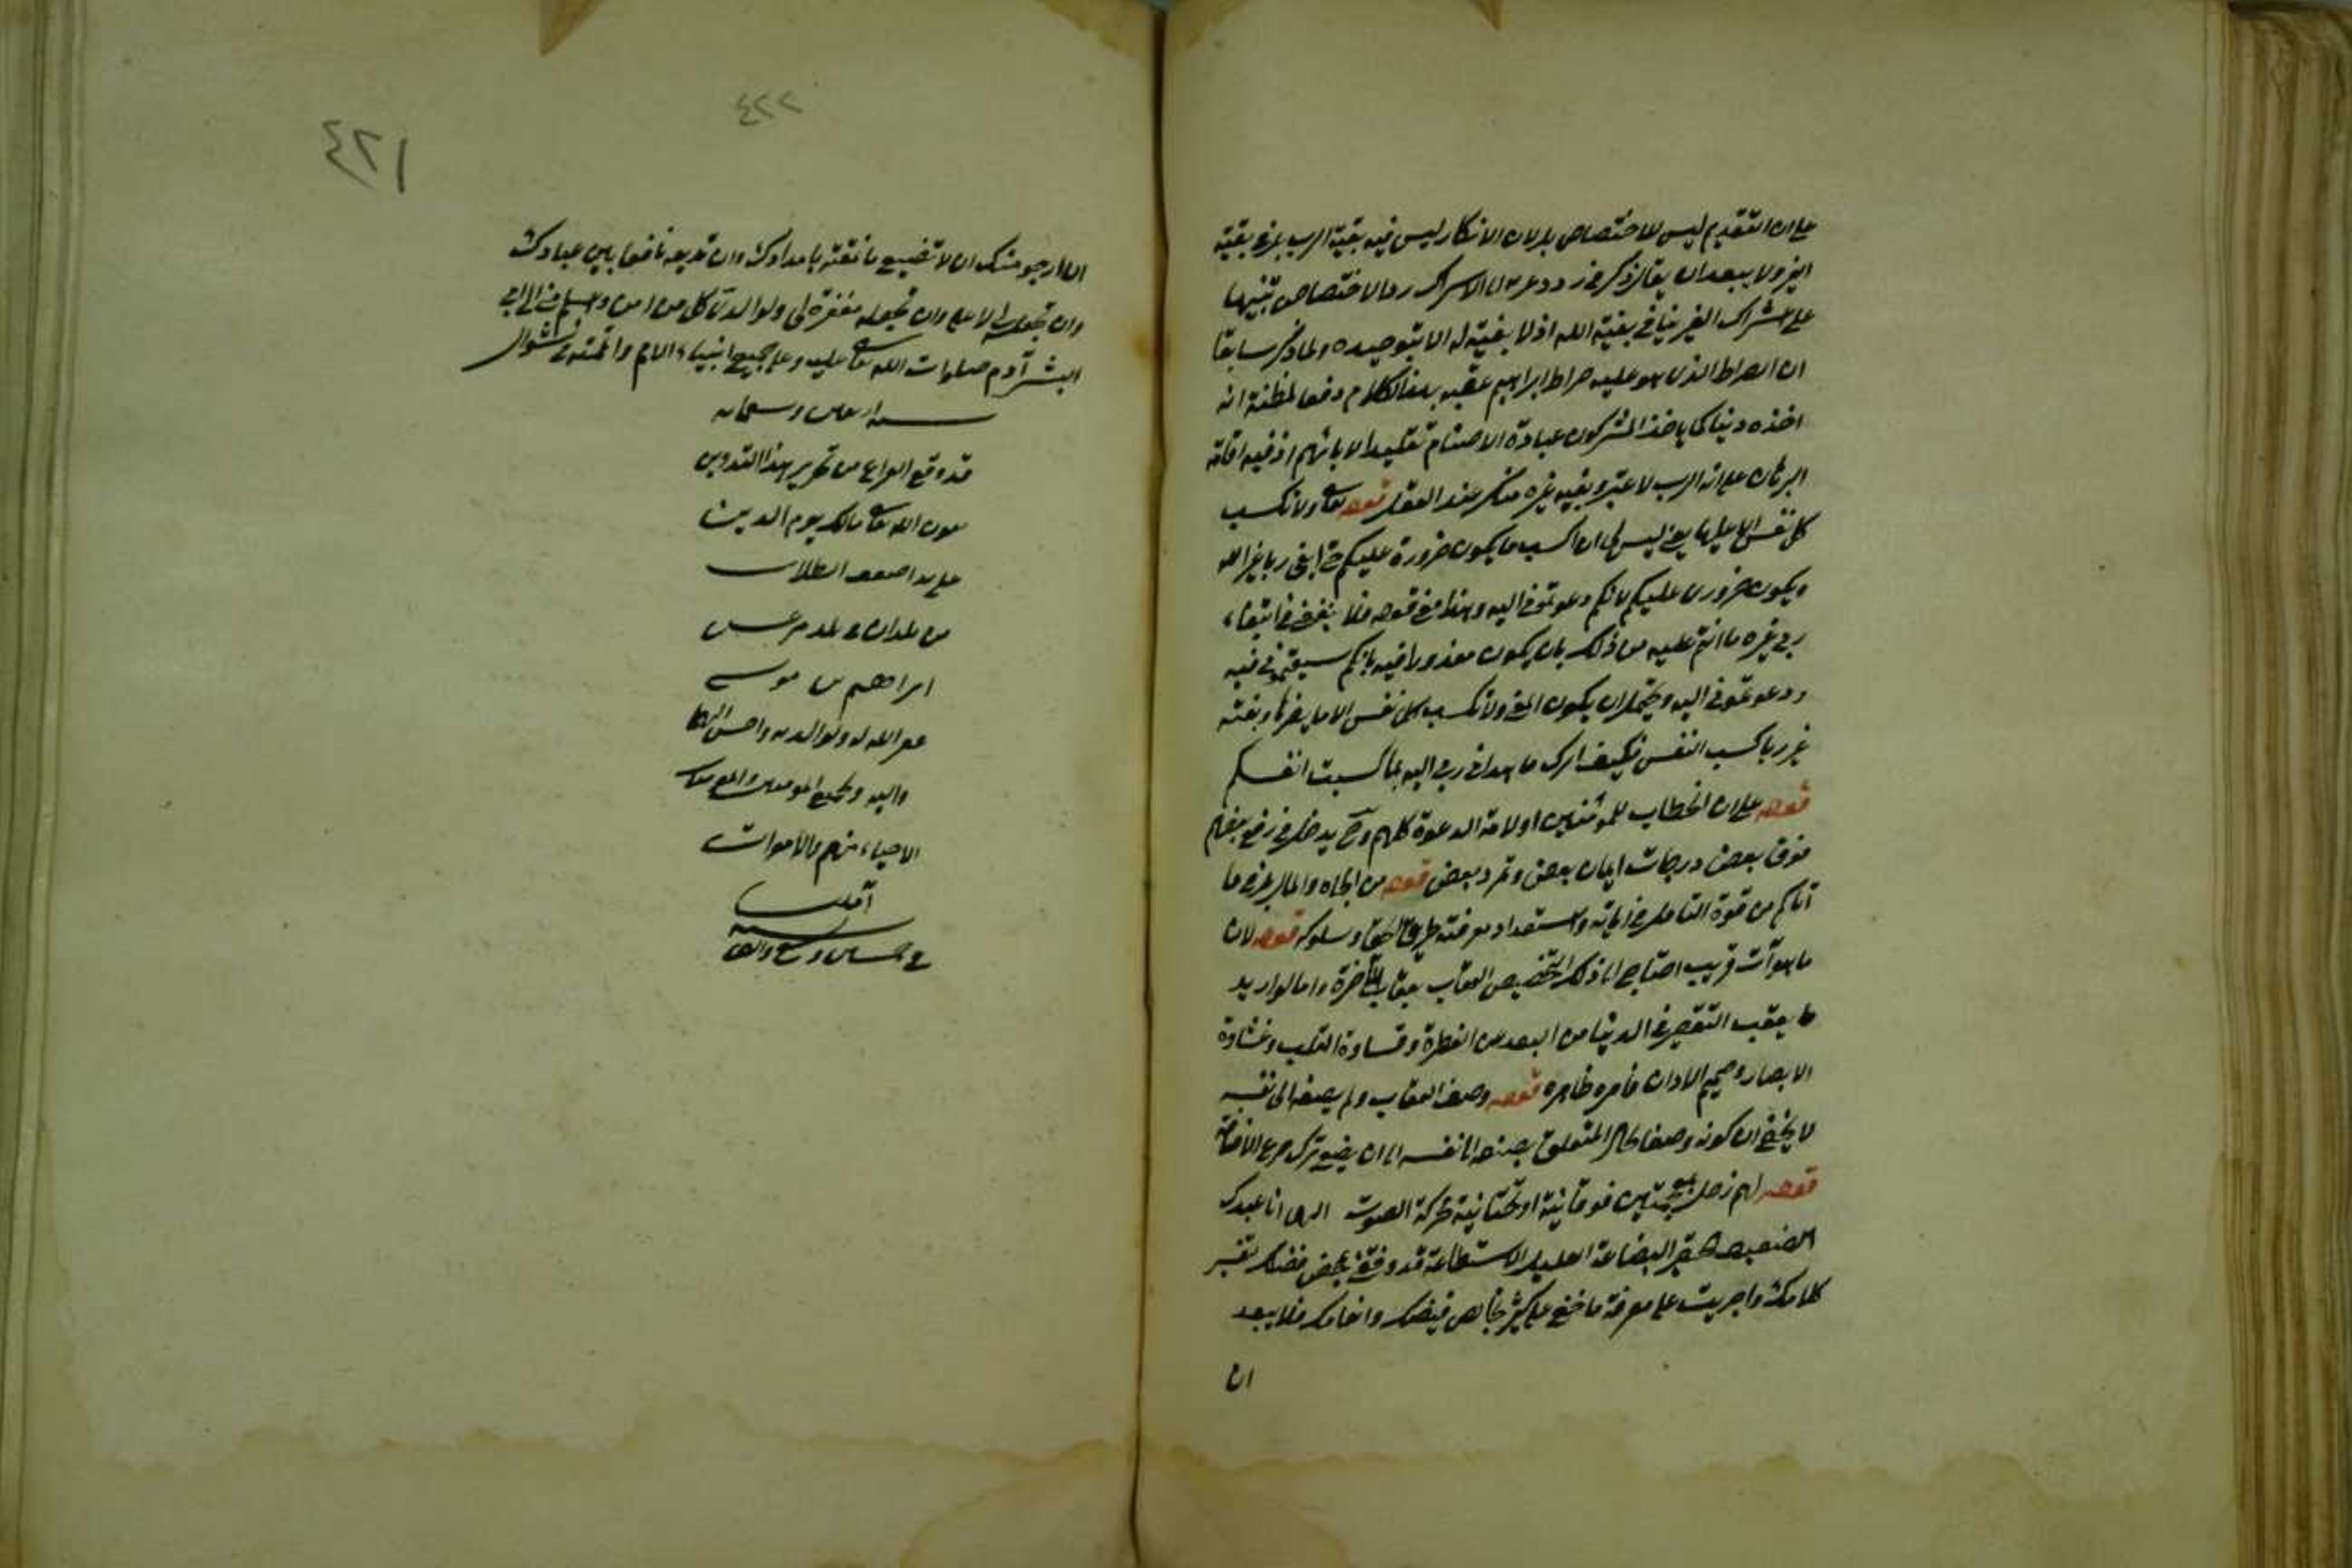 على ان التقديم ليس للاختصاص بل لان الانكار ليس فيه بغية الرب بل في بغية
الغير ولا يبعد ان يقال ذكر في رد دعوتهم الى الاشراك رد الاختصاص تنبيها
على اشراك الغير ينافي بغية الله اذ لا بغية له الا بتوحيده ولما ذكر سابقا
ان الصراط الذي هو عليه صراط ابراهيم عقبه بهذا الكلام دفعا لمظنة انه
اخذه دينا كما ياخذ المشركون عبادة الاصنام تقليدا لابائهم اذ فيه اقامة
البرهان على انه الرب لا غير وبغية غيره منكر عند العقل قوله تعالى ولا تكسب
كل نفس الا عليها يعني ليس لي ان اكسب ما يكون ضرورة عليكم حتى ابغي ربا غير الله
ويكون ضرره عليكم لانكم دعوتموني اليه وهذا معنى قوله فلا ينفعني في ابتغاء
ربي غيره ما انتم عليه من ذلك بان يكون معذورا فيه بانكم سبقتموني فيه
ودعوتموني اليه ويحتمل ان يكون المعنى ولا تكسب كل نفس الا ما يضرها وبغية
غير ربا كسب النفس فكيف اترك ما هداني ربي اليه بما كسبت انفسكم
قوله على ان الخطاب للمؤمنين او لامة الدعوة كلهم وح يدخل في رفع بعضهم
فوق بعض درجات ايمان بعض وتمرد بعض قوله من الجاه والمال بل في ما
آتاكم من قوة التامل في اياته واستعداد معرفته طريق الحق وسلوكه قوله لان
ما هو آت قريب احتاج الى ذلك لتخصيص العقاب بعقاب الآخرة واما لو اريد
ما يعقب التقصير في الدنيا من البعد عن الفطرة وقساوة القلب وغشاوة
الابصار وصمم الاذان فامره ظاهره قوله وصف العقاب ولم يضفه الى نفسه
لا يخفى ان كونه وصفا بحال المتعلق يصنفه الى نفسه الا ان يعني ترك صريح الاضافة
قوله لهم زجل بمعجمتين فوقانية او تحتانية محركة الصوت الهي انا عبدك
الضعيف حقير البضاعة القليل الاستطاعة قد وفقتني بمحض فضلك تفسير
كلامك واجريت على معرفة ما خفي على كثير خالص فيضك وانعامك فلا يبعد
ان
٤٢٢
٤٢١
اللا ارجو منك ان لا تضيع ما نمقته بامدادك وان تديمه نافعا بين عبادك
وان تجعله مغفرة لي ولوالدي وكل من امن
البشر آدم صلوات الله تعالى عليه وعلى جميع انبياء الانام واتممته في شوال
قد وقع الفراغ من تحرير هذا التدوين
بعون الله تعالى مالك يوم الدين
على يد اضعف الطلاب
من بلدان في بلد مرعش
ابراهيم بن موسى
غفر الله له ولوالديه واحسن اليهما
واليه ولجميع المؤمنين والمؤمنات
الاحياء منهم والاموات